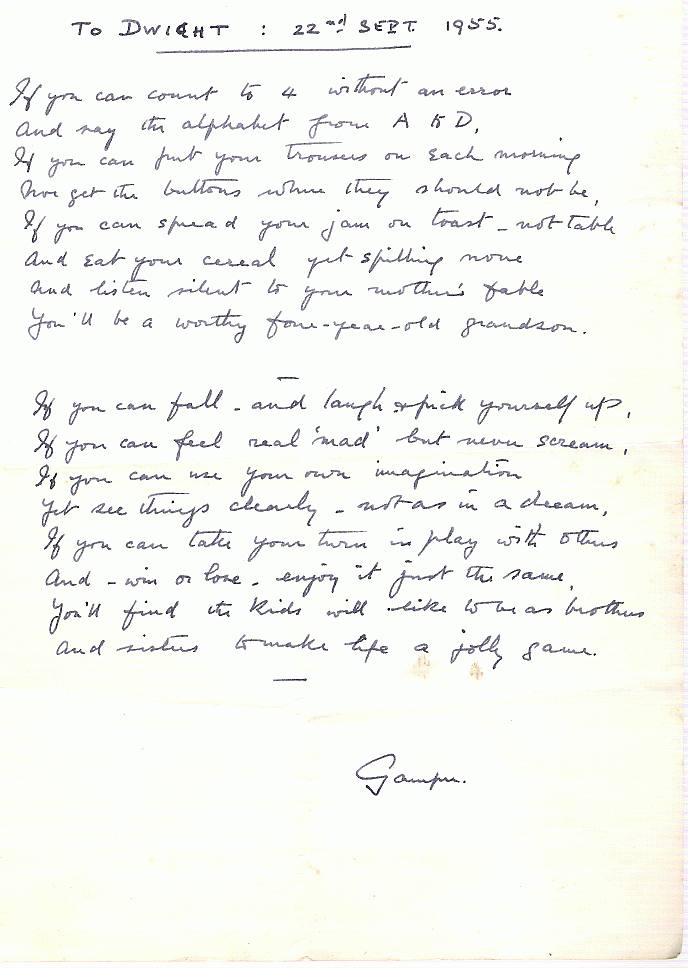 TO DWIGHT : 22nd SEPT. 1955.
If you can count to 4 without an error
And say the alphabet from A to D,
If you can put your trousers on each morning
Nor get the buttons where they should not be,
If you can spread your jam on toast - not table
And eat your cereal yet spilling none
And listen silent to your mother's fable
You'll be a worthy four-year-old grandson.
If you can fall - and laugh & pick yourself up,
If you can feel real 'mad' but never scream,
If you can use your own imagination
Yet see things clearly - not as in a dream,
If you can take your turn in play with others
And - win or lose - enjoy it just the same,
You'll find the kids will like to be as brothers
And sisters to make life a jolly game.